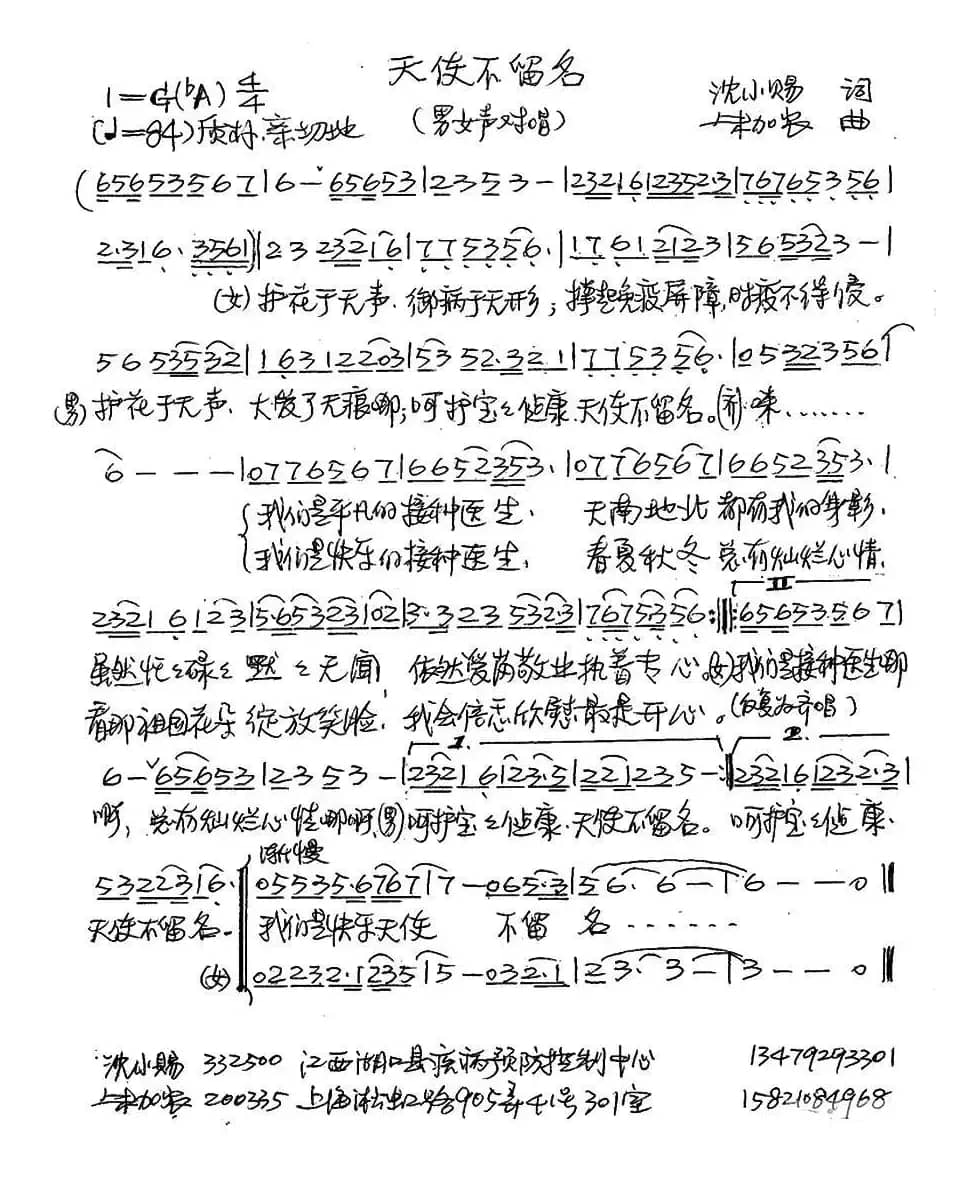 天使不留名
1=G(♭A) 4/4 （男女声对唱） 沈小赐 词
(♩=84) 质朴.亲切地 加农 曲
(6 5 6 5 3 5 6 7 | 6 - ˇ 6 5 6 5 3 | 2 3 5 3 - | 2 3 2 1 6 1 2 3 5 2·3 | 7 6 7 6 5 3 5 6 |
2·3 1 6· 3 5 6 1) | 2 3 2 3 2 1 6 | 7 7 5 3 5 6· | 1 7 6 1 2 1 2 3 | 5 6 5 3 2 3 - |
(女) 护花于无声、御病于无形；撑起免疫屏障,时疫不得侵。
5 6 5 3 5 3 2 | 1 6 3 1 2 2 0 3 | 5 3 5 2·3 2 1 | 7 7 5 3 5 6· | 0 5 3 2 3 5 6 |
(男) 护花于无声、大爱了无痕哪;呵护宝々健康.天使不留名。(齐)唻.......
6 - - - | 0 7 7 6 5 6 7 | 6 6 5 2 3 5 3· | 0 7 7 6 5 6 7 | 6 6 5 2 3 5 3· |
我们是平凡的接种医生、 天南地北 都有我的身影、
我们是快乐的接种医生、 春夏秋冬 总有灿烂心情,
II
2 3 2 1 6 1 2 3 | 5·6 5 3 2 3 1 0 2 | 3·3 2 3 5 3 2·3 | 7 6 7 5 3 5 6 :‖: 6 5 6 5 3·5 6 7 |
虽然忙々碌々 默々无闻, 依然爱岗敬业执着专心。(女)我们是接种医生哪
看那祖国花朵 绽放笑脸, 我会倍感欣慰最是开心。(反复为齐唱)
1. 2.
6 - ˇ 6 5 6 5 3 | 2 3 5 3 - | 2 3 2 1 6 1 2 3·5 | 2 2 1 2 3 5 - :‖ 2 3 2 1 6 1 2 3 2·3 |
啊, 总有灿烂心情哪啊,(男)呵护宝々健康.天使不留名。 呵护宝々健康.
渐慢
5 3 2 2 3 1 6· | 0 5 5 3 5·6 7 6 7 | 7 - 0 6 5·3 | 5 6· 6 - | 6 - - 0 ‖
天使不留名. 我们是快乐天使 不留 名 ......
(女) 0 2 2 3 2·1 2 3 5 | 5 - 0 3 2·1 | 2 3· 3 - | 3 - - 0 ‖
沈小赐 332500 江西湖口县疾病预防控制中心 13479293301
加农 200335 上海淞虹路905弄41号301室 15821084968